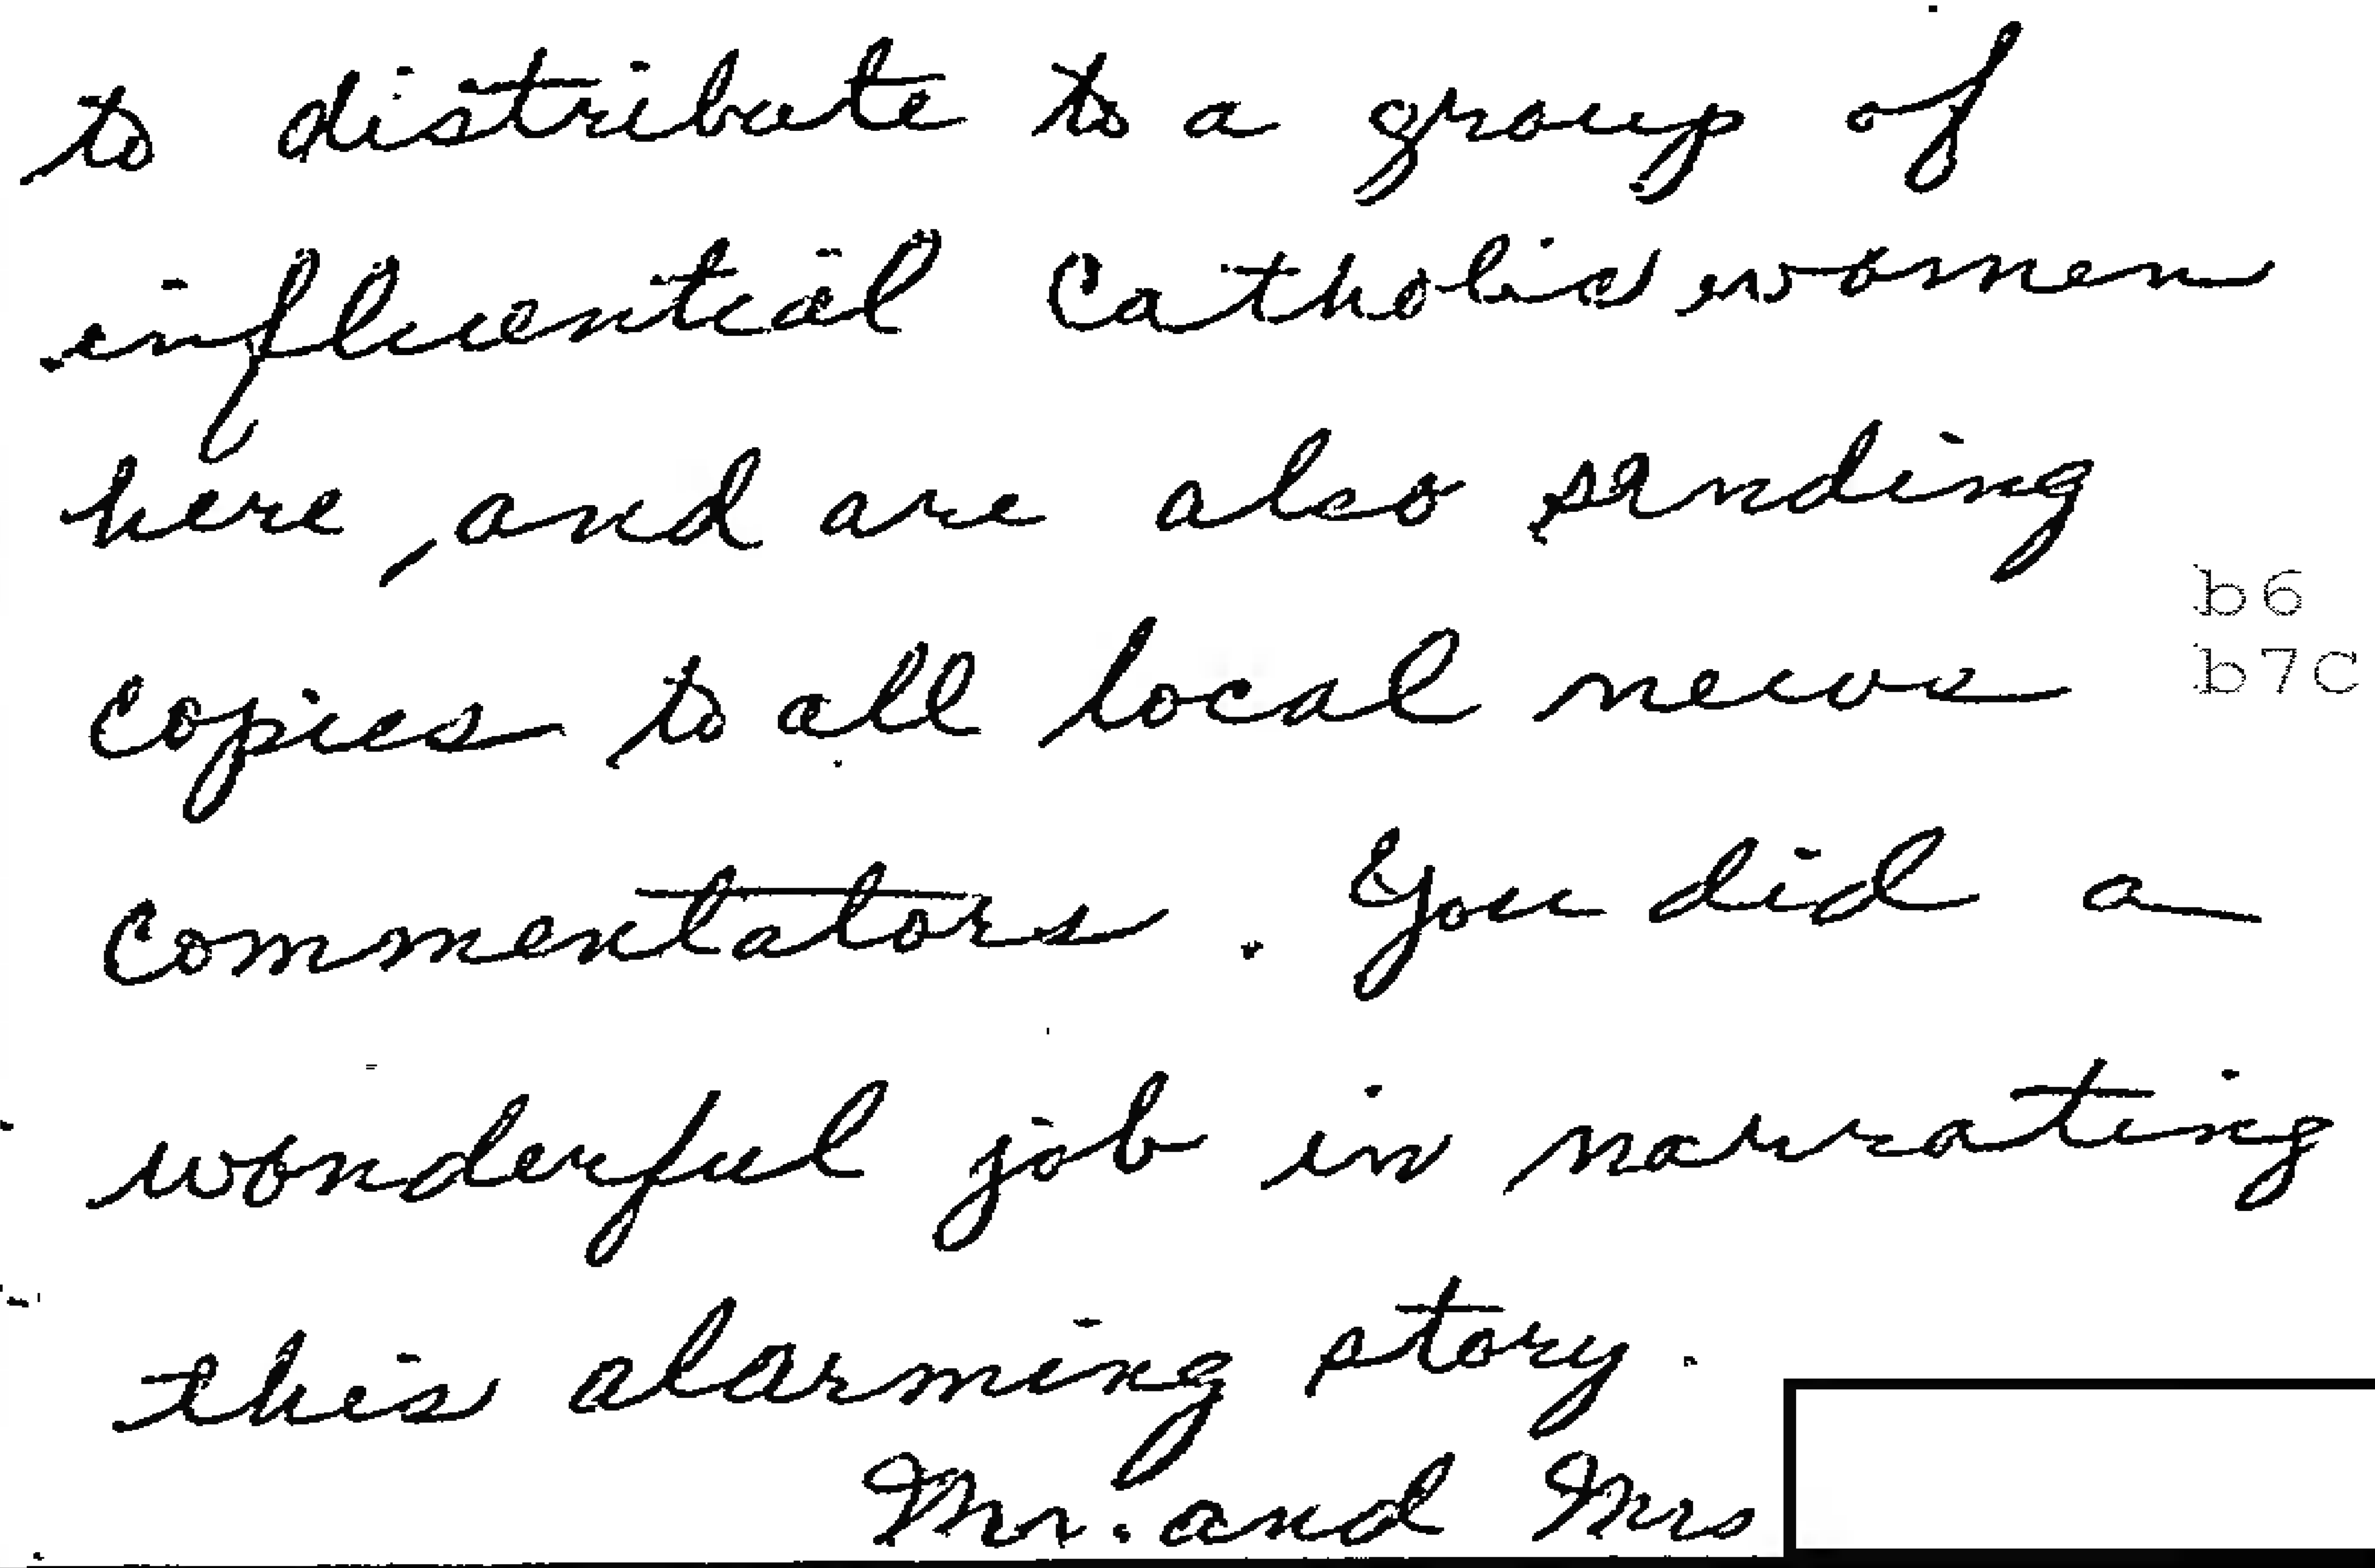 to distribute to a group of
influential Catholic women
here, and are also sending
b6
copies to all local news
b7C
commentators. You did a
wonderful job in narrating
this alarming story.
Mr. and Mrs